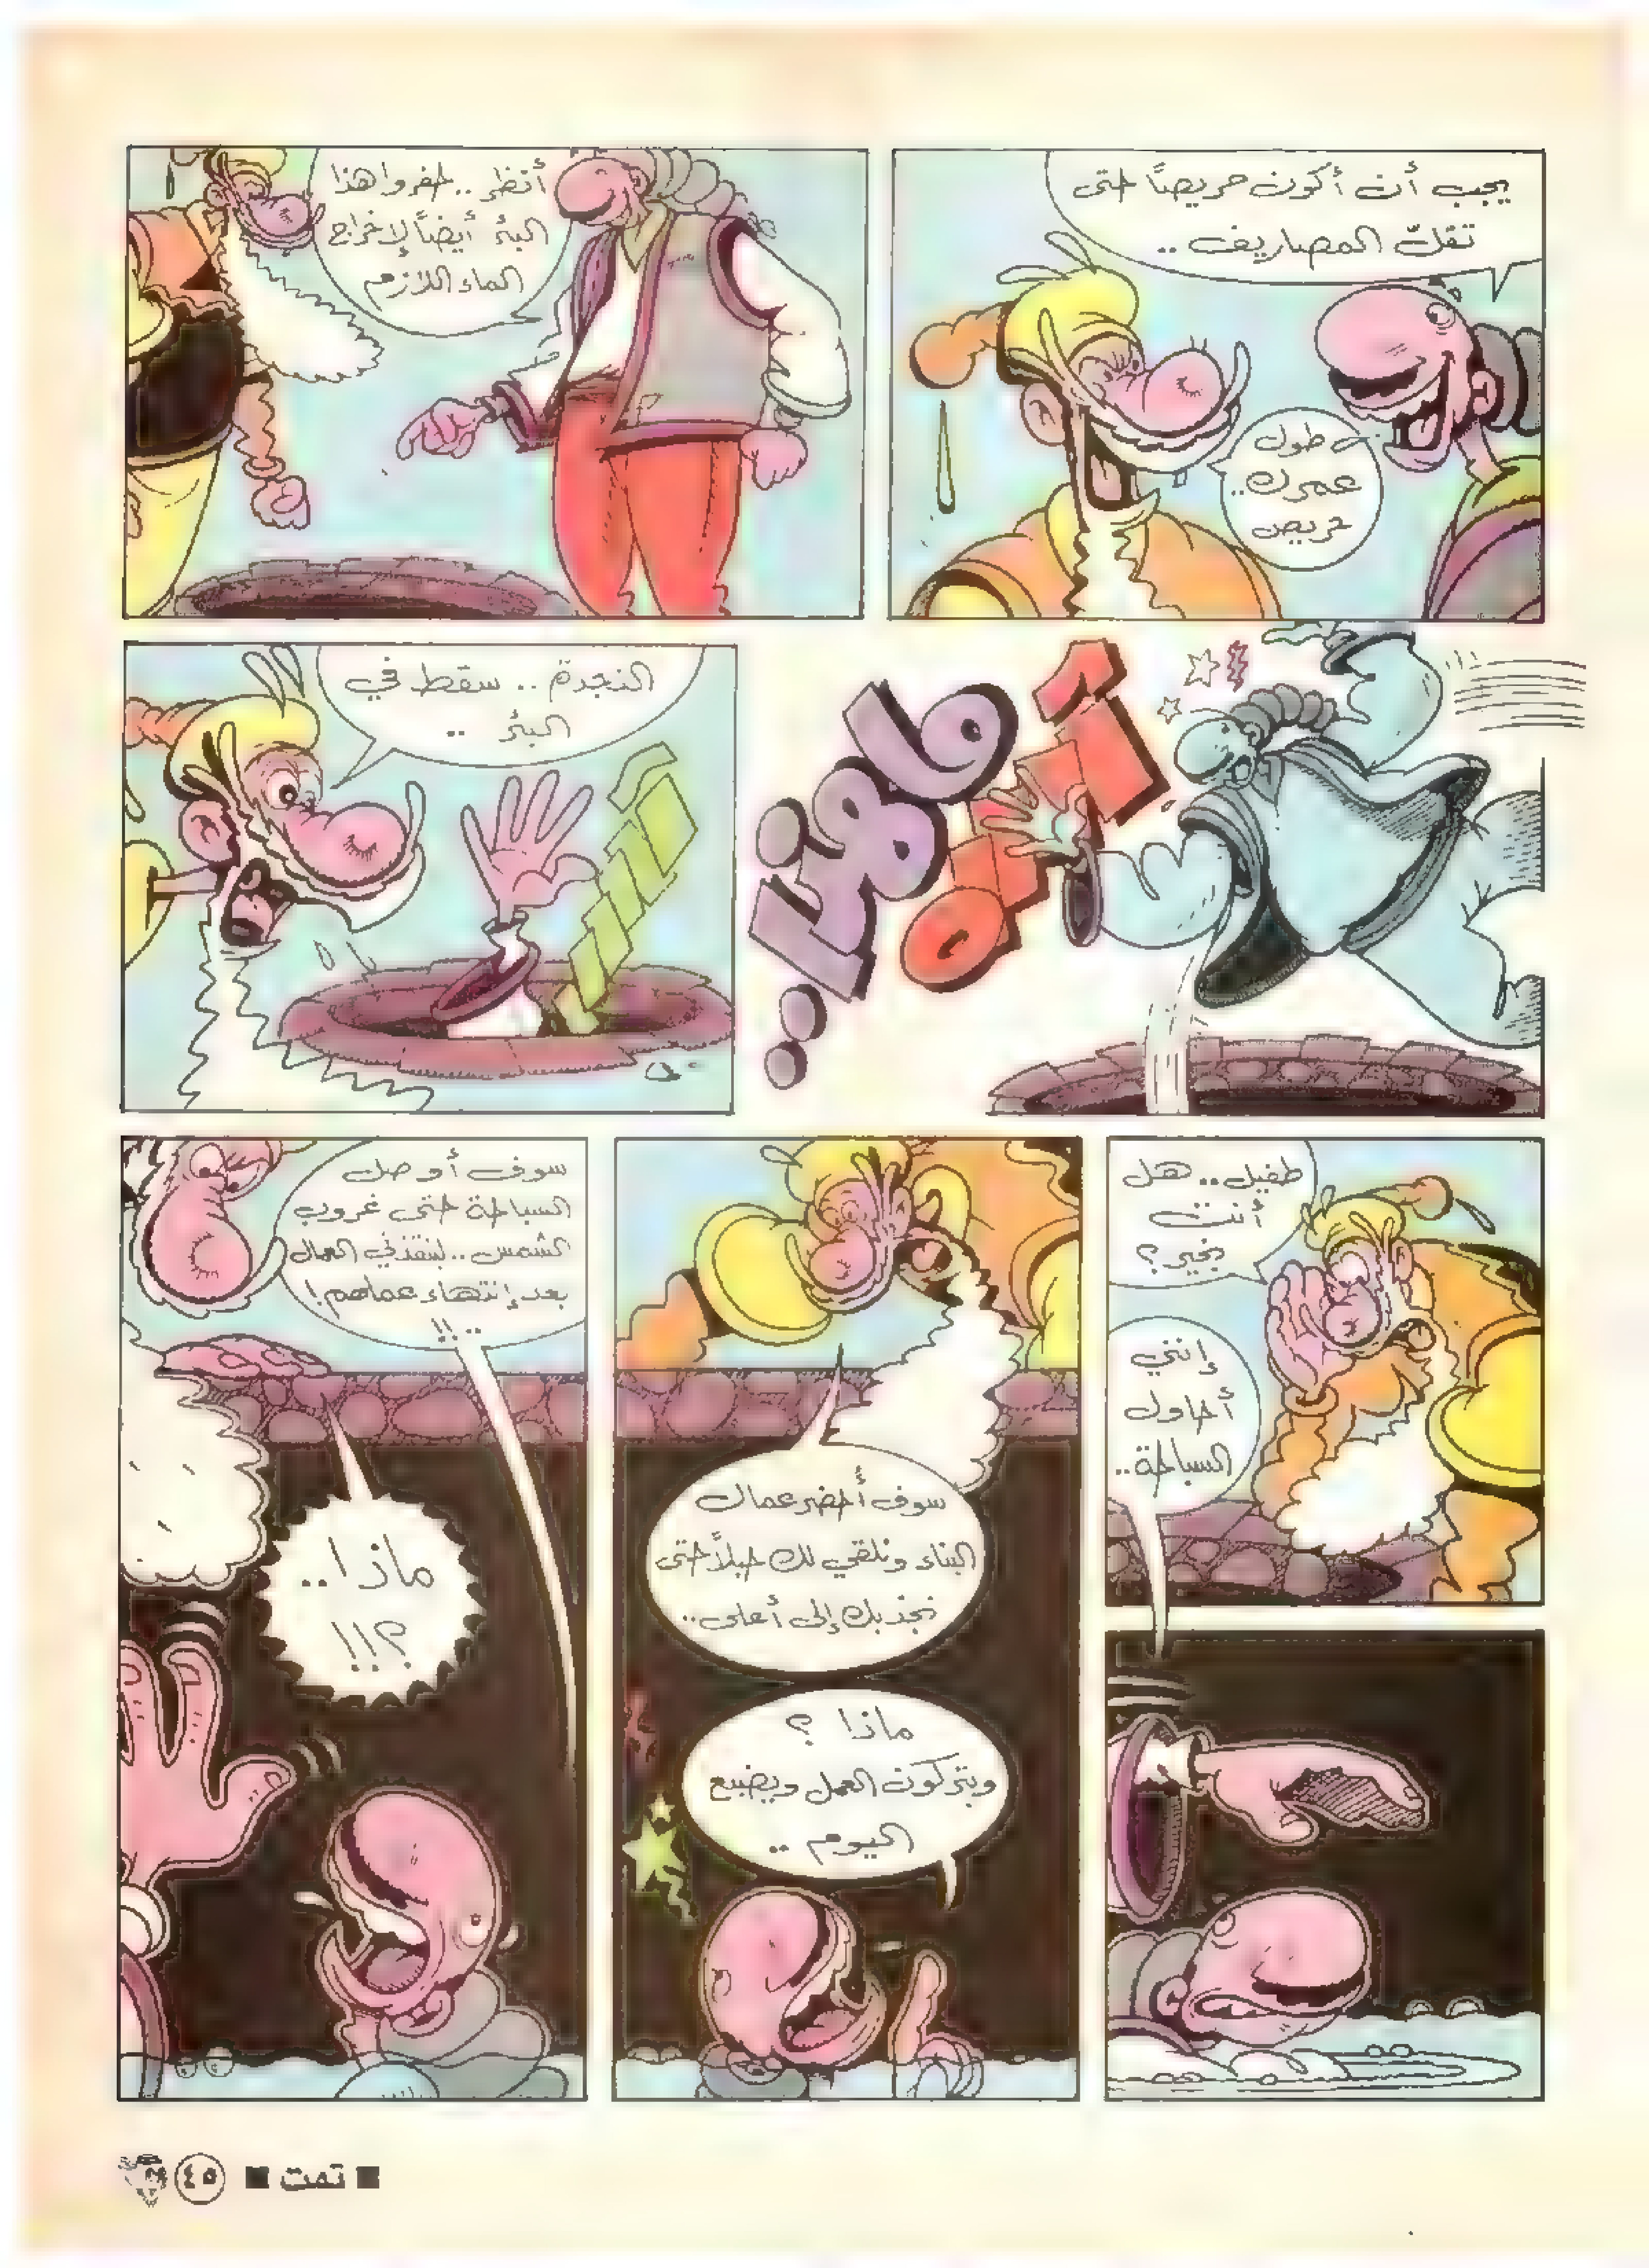 يجب أن أكون حريصًا حتى
تقلّ المصاريف ..
طول
عمرك ..
حريص
أنظر .. حفروا هذا
البئر أيضًا لإخراج
الماء اللازم
آ
ما هذا ..
النجدة .. سقط في
البئر ..
طفيل .. هل
أنت
بخير ؟
إنني
أحاول
السباحة ..
سوف أُحضر عمال
البناء ونلقي لك حبلاً حتى
نجذبك إلى أعلى ..
ماذا ؟
ويتركون العمل ويضيع
اليوم ..
سوف أوصل
السباحة حتى غروب
الشمس .. لينقذني العمال
بعد إنتهاء عملهم !
.. !!
ماذا ..
؟!!
■ تمت ■ ٤٥